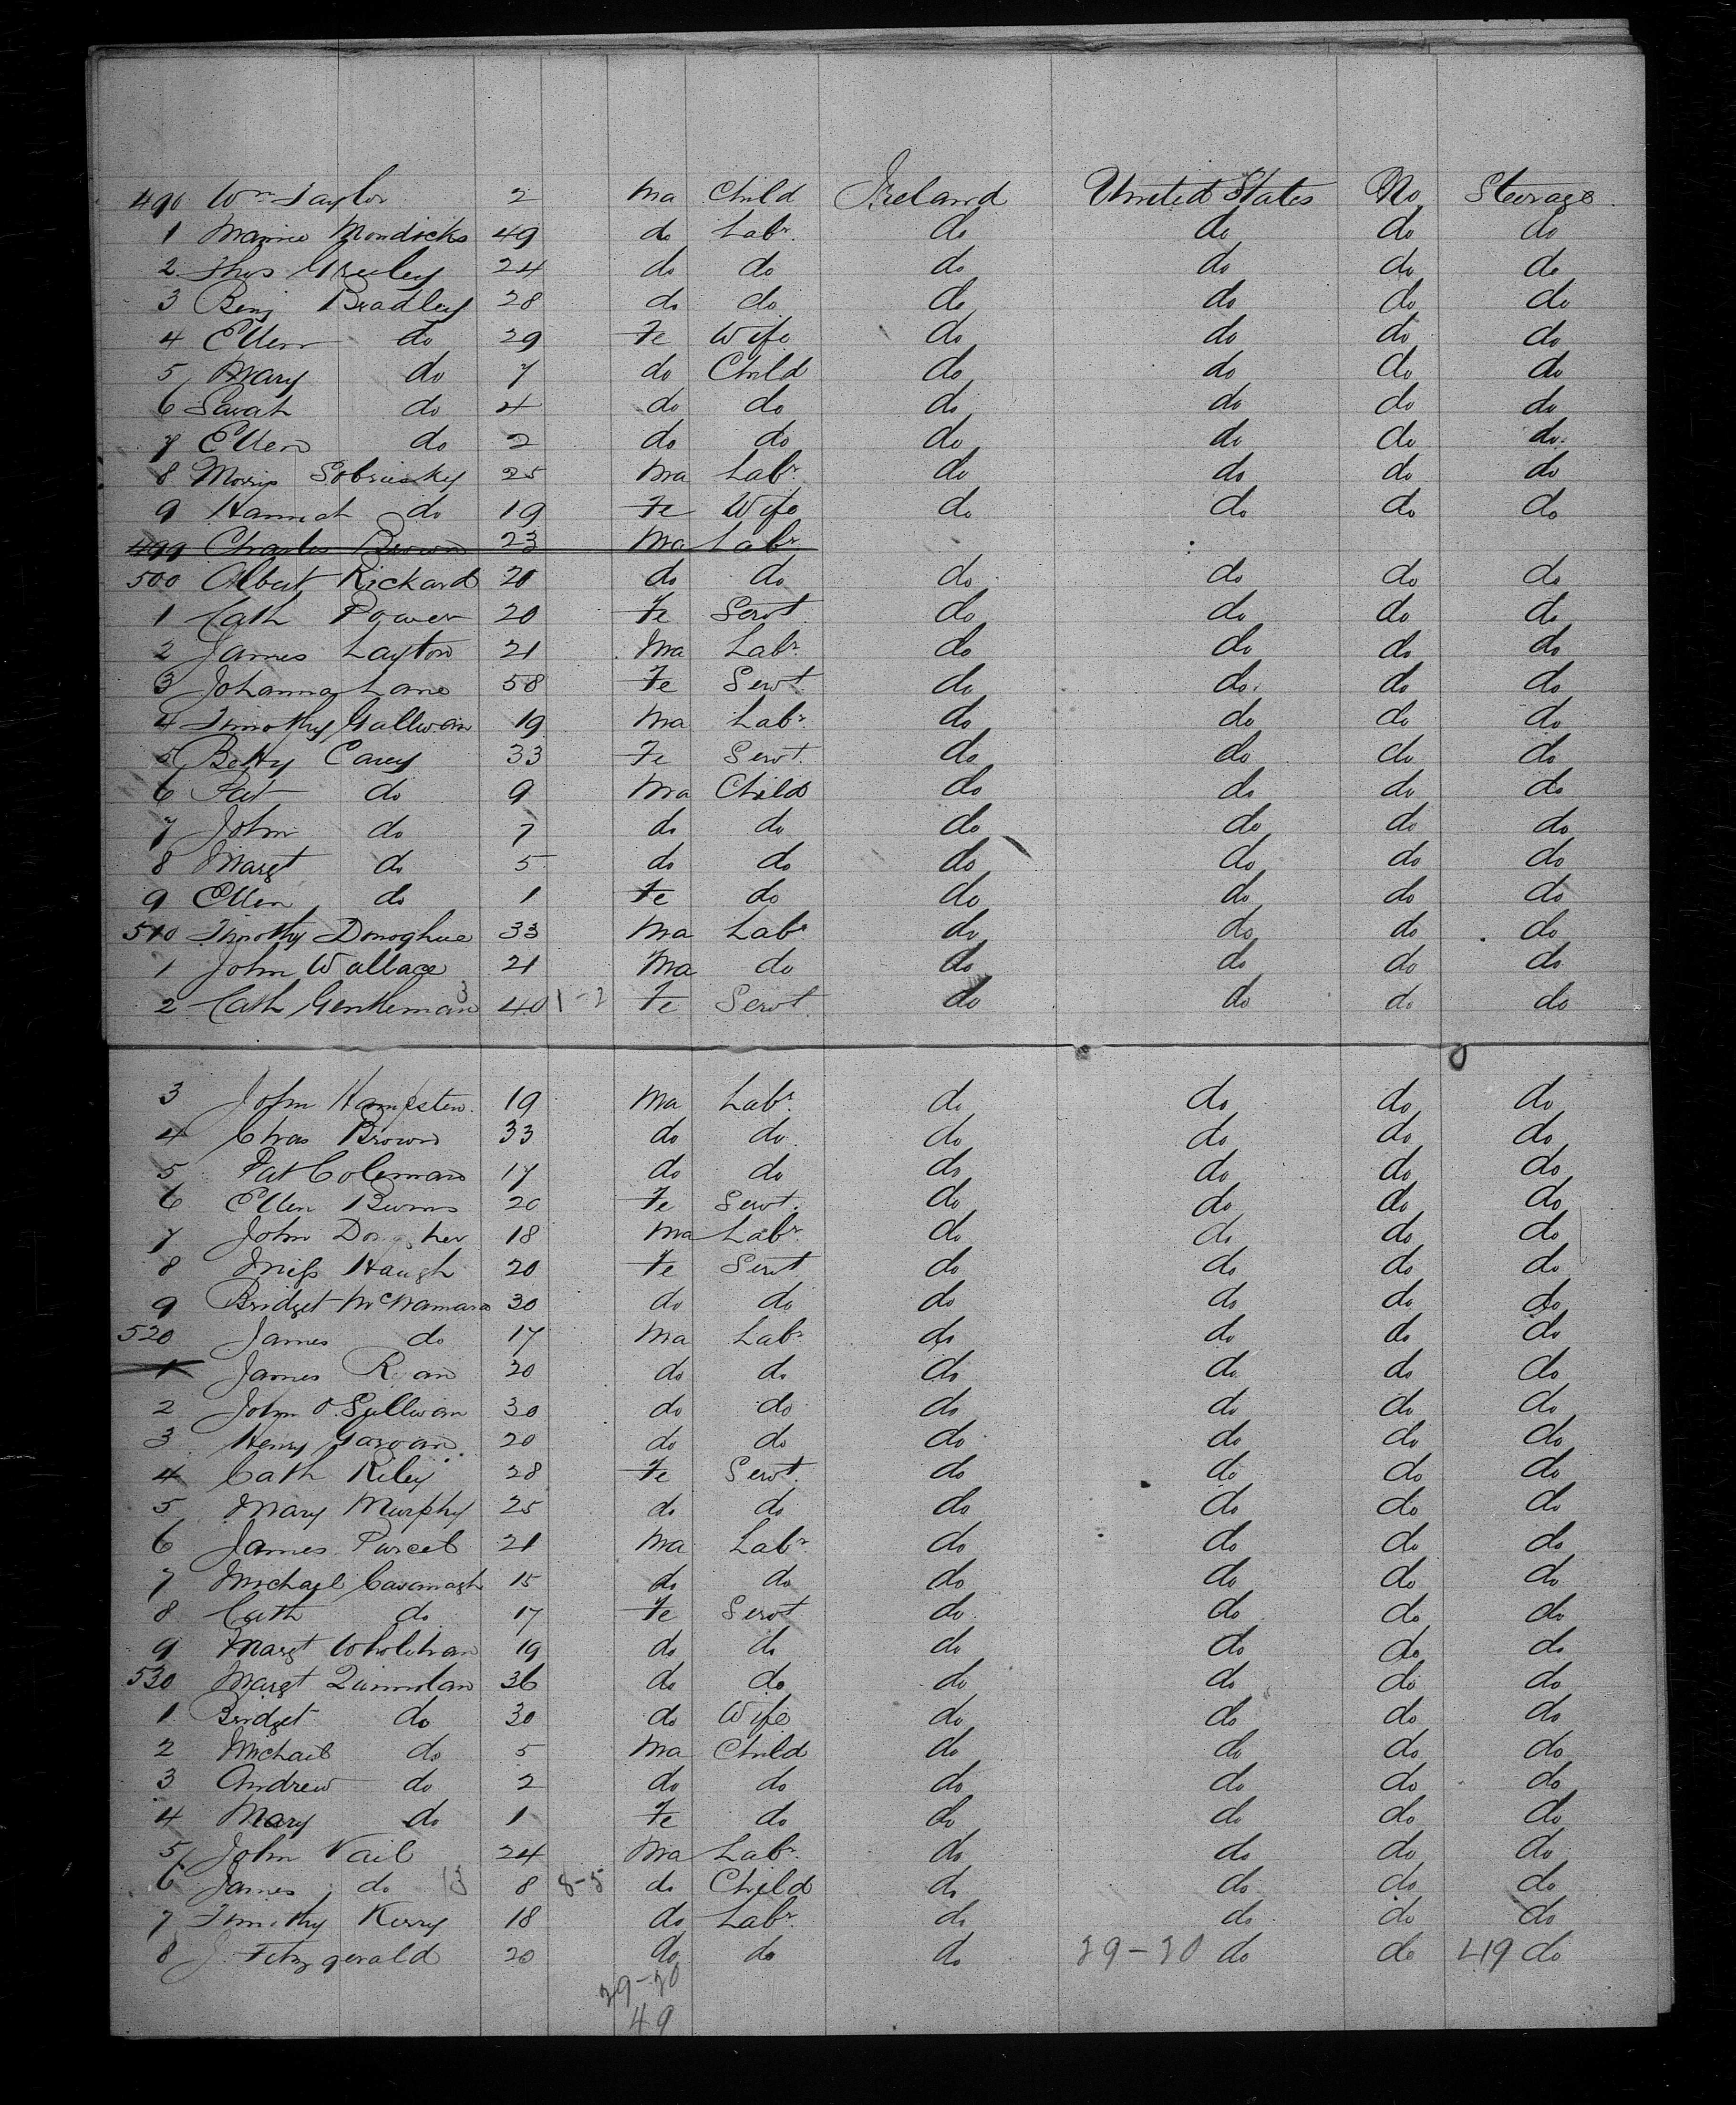 490 Wm Taylor 2 Ma Child Ireland United States No Steerage
1 49 do Labr. do do do do
2 Thos Greeley 24 do do do do do do
3 Benj Bradley 28 do do do do do do
4 Ellen do 29 Fe Wife do do do do
5 Mary do 7 do Child do do do do
6 Sarah do 4 do do do do do do
7 Ellen do 2 do do do do do do
8 Morris 25 Ma Labr. do do do do
9 Hannah do 19 Fe Wife do do do do
499 Charles Brown 23 Ma Labr
500 Albert Rickard 20 do do do do do do
1 Cath Power 20 Fe Servt. do do do do
2 James Layton 21 Ma Labr. do do do do
3 Johanna Lane 58 Fe Servt. do do do do
4 Timothy Gallivan 19 Ma Labr. do do do do
5 Betty Carey 33 Fe Servt. do do do do
6 Pat do 9 Ma Child do do do do
7 John do 7 do do do do do do
8 Margt do 5 do do do do do do
9 Ellen do 1 Fe do do do do do
510 Timothy Donoghue 33 Ma Labr do do do do
1 John Wallace 21 Ma do do do do do
2 Cath Gentleman 3 40 1-2 Fe Servt. do do do do
3 John 19 Ma Labr. do do do do
4 Chas Brown 33 do do do do do do
5 Pat Coleman 17 do do do do do do
6 Ellen Burns 20 Fe Servt. do do do do
7 John 18 Ma Labr. do do do do
8 Miss Haugh 20 Fe Servt do do do do
9 Bridget McNamara 30 do do do do do do
520 James do 17 Ma Labr. do do do do
1 James Ryan 20 do do do do do do
2 John O'Sullivan 30 do do do do do do
3 Henry Garvan 20 do do do do do do
4 Cath Riley 28 Fe Servt. do do do do
5 Mary Murphy 25 do do do do do do
6 James Purcel 21 Ma Labr. do do do do
7 Michael Cavanagh 15 do do do do do do
8 Cath do 17 Fe Servt do do do do
9 Margt 19 do do do do do do
530 Margt Quinnlan 36 do do do do do do
1 Bridget do 30 do Wife do do do do
2 Michael do 5 Ma Child do do do do
3 Andrew do 2 do do do do do do
4 Mary do 1 Fe do do do do do
5 John Vail 24 Ma Labr. do do do do
6 James do 13 8 8-5 do Child do do do do
7 Timothy Kerry 18 do Labr. do do do do
8 J. Fitzgerald 20 do do do 29-20 do do 49 do
29-20
49